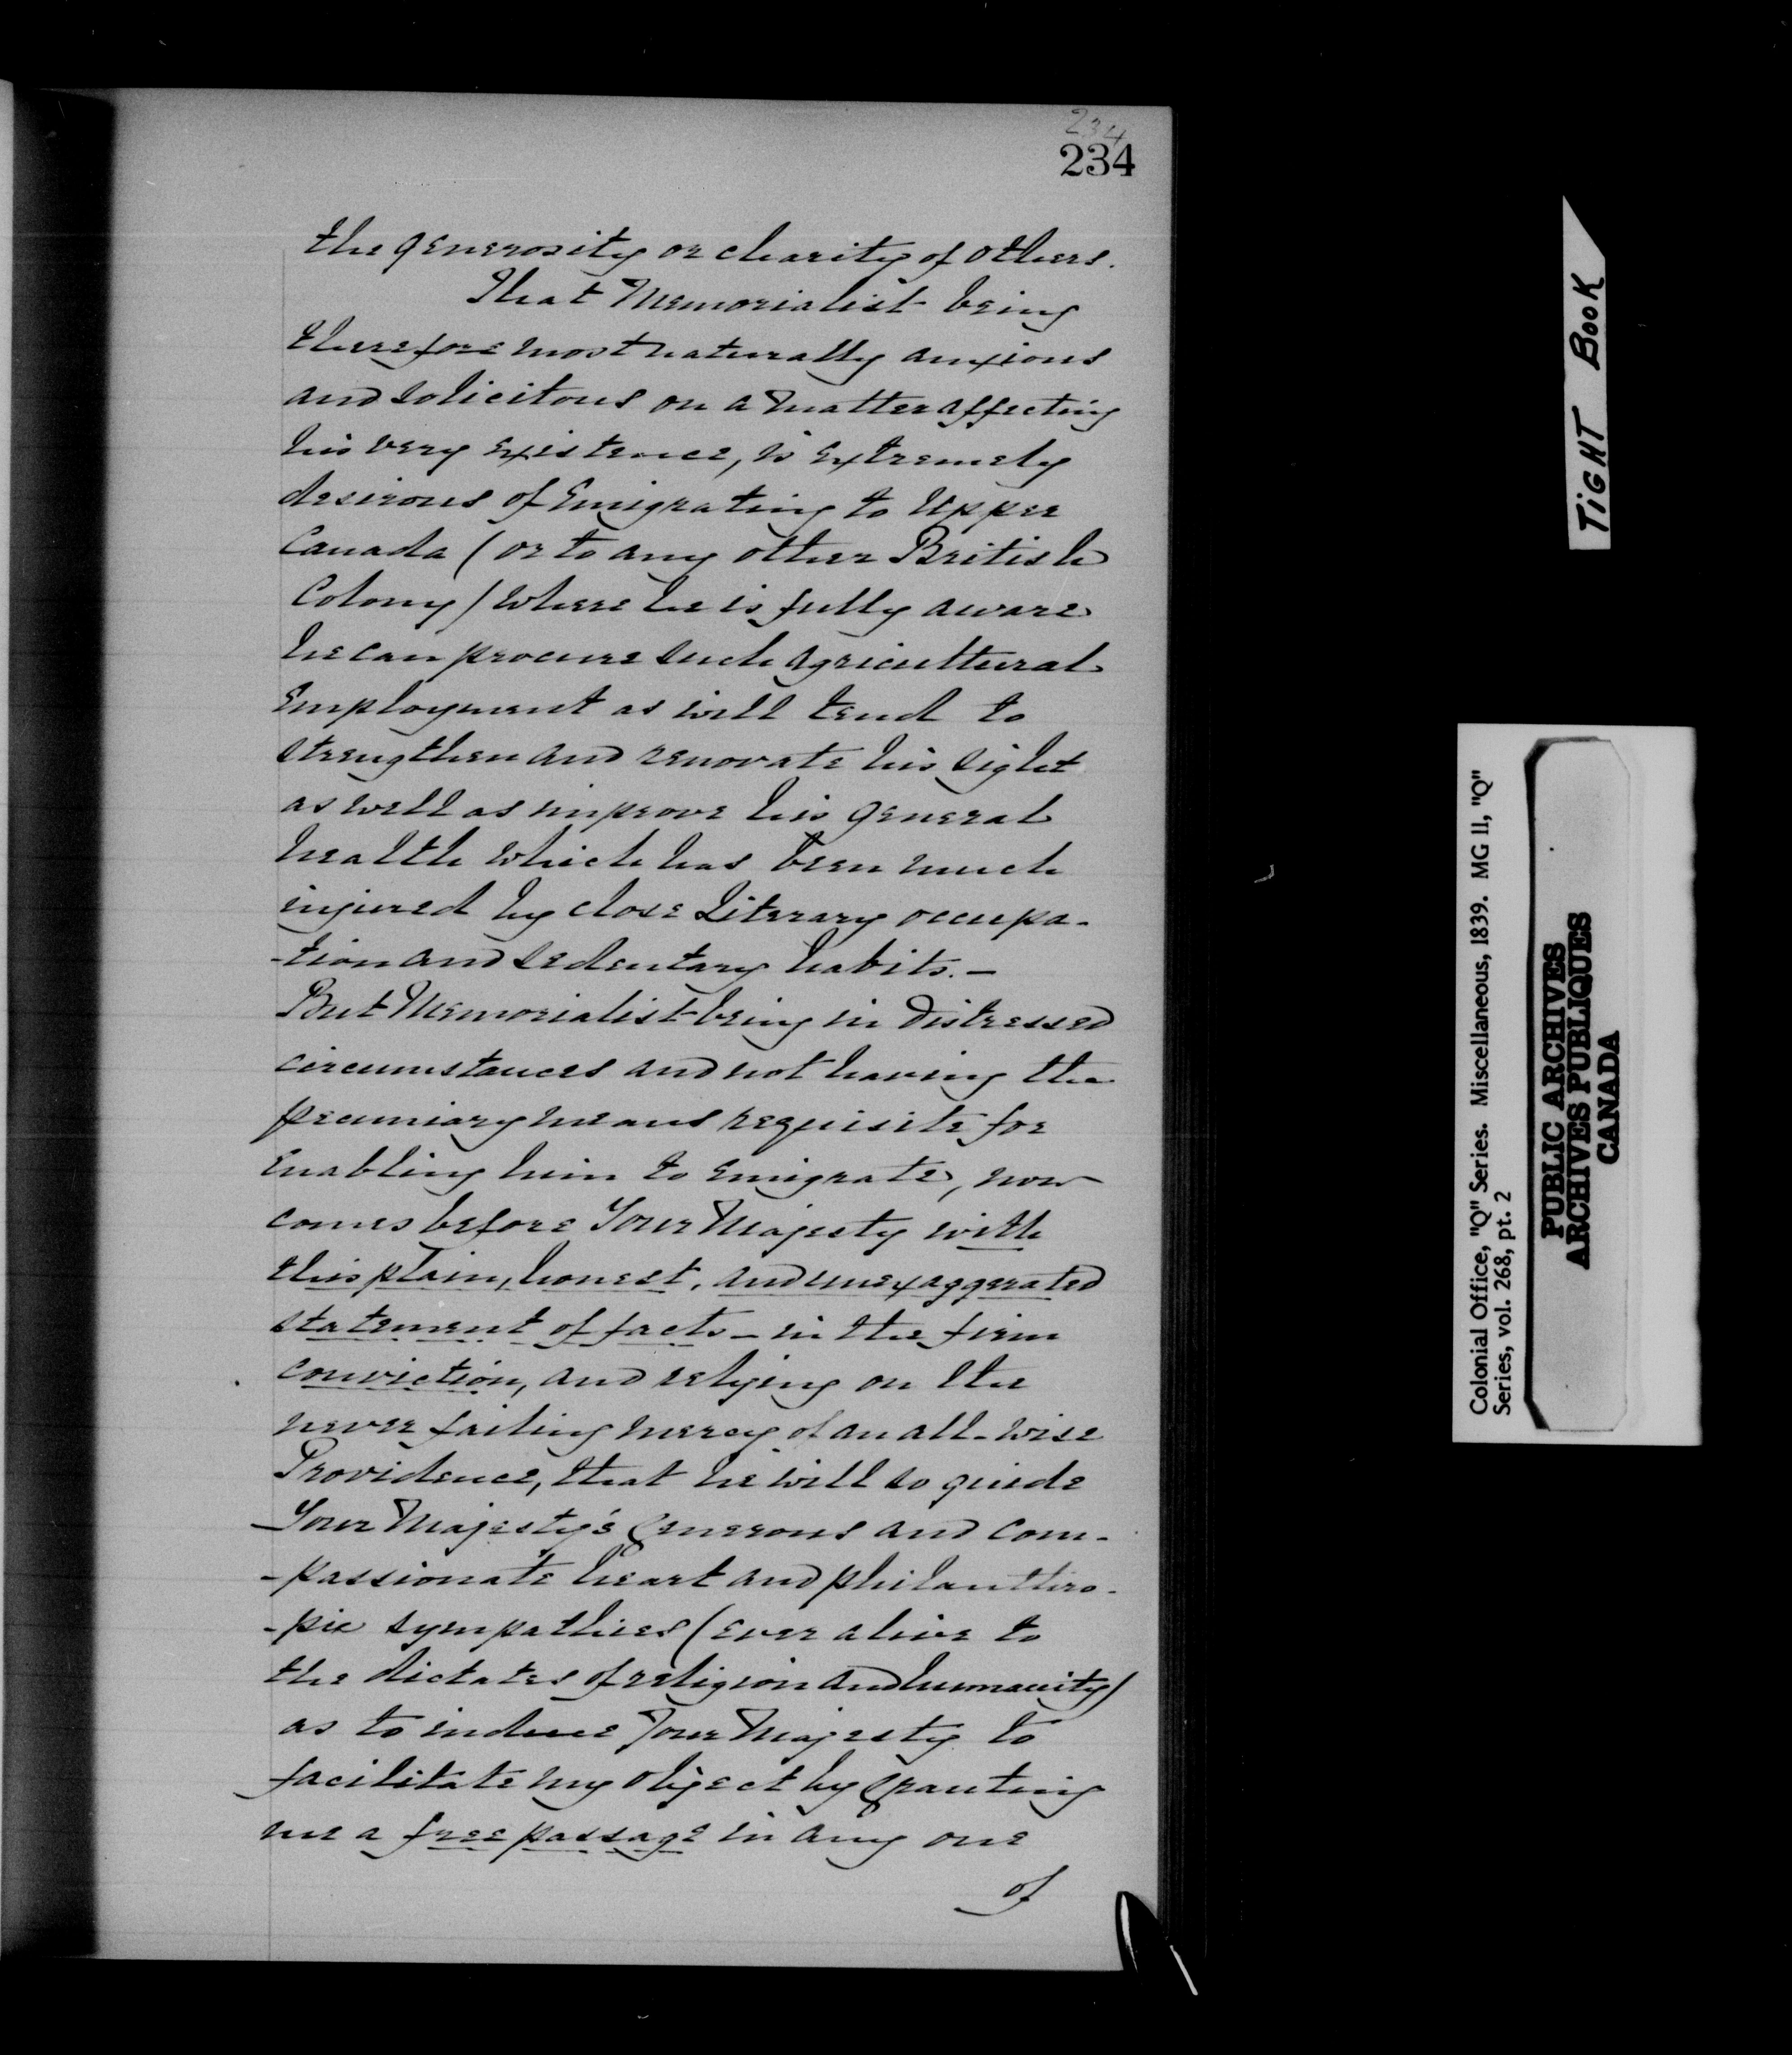 234
234
the generosity or charity of others.
That Memorialist being
therefore most naturally anxious
and solicitous on a matter affecting
his very existence, is extremely
desirous of Emigrating to Upper
Canada (or to any other British
Colony) where he is fully aware
he can procure such agricultural
Employment as will tend to
strengthen and renovate his sight
as well as improve his general
health which has been much
injured by close Literary occupa-
-tion and sedentary habits. –
But Memorialist being in distressed
circumstances and not having the
pecuniary means requisite for
Enabling him to Emigrate, now
comes before Your Majesty with
this plain, honest, and unexaggerated
statement of facts – in the firm
conviction, and relying on the
never failing mercy of an all-wise
Providence, that he will so guide
Your Majesty's Generous and com-
-passionate heart and philanthro-
-pic sympathies (ever alive to
the dictates of religion and humanity)
as to induce Your Majesty to
facilitate my object by Granting
me a free passage in any one
of
TIGHT BOOK
Colonial Office, "Q" Series. Miscellaneous, 1839. MG 11, "Q"
Series, vol. 268, pt. 2
PUBLIC ARCHIVES
ARCHIVES PUBLIQUES
CANADA